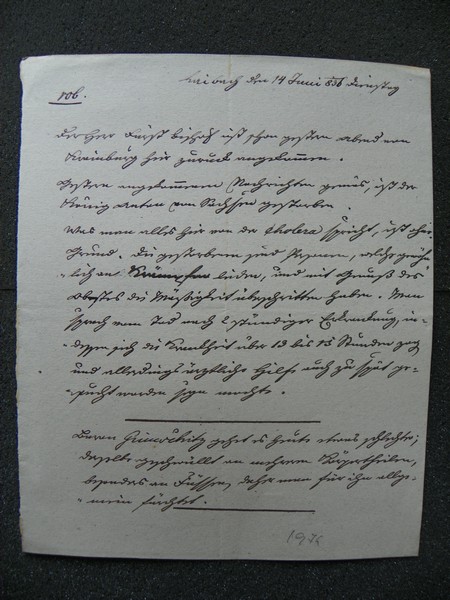 Laibach den 14 Juni 836 Dienstag
106.
Der Herr Fürst Bischof ist schon gestern Abend von
Krainburg hier zurück angekommen.
Gestern angekommenen Nachrichten gemäs, ist der
König Anton von Sachsen gestorben.
Was man alles hier von der Cholera spricht, ist ohne
Grund. Die gestorbenen sind Personen, welche
lich an leiden, und mit Genuß des
Obstes die Mässigkeit überschritten haben. Man
sprach vom Tod nach 2 stündiger Erkrankung, in-
dessen sich die Krankheit über 12 bis 15 Stunden zog
und allerdings ärztliche Hilfe auch zu spät ge-
sucht worden seyn mochte.
Baron geht es heute etwas schlechter;
derselbe geschwillt an mehreren Körpertheilen,
besonders an Füssen, daher man für ihn allge-
mein fürchtet.